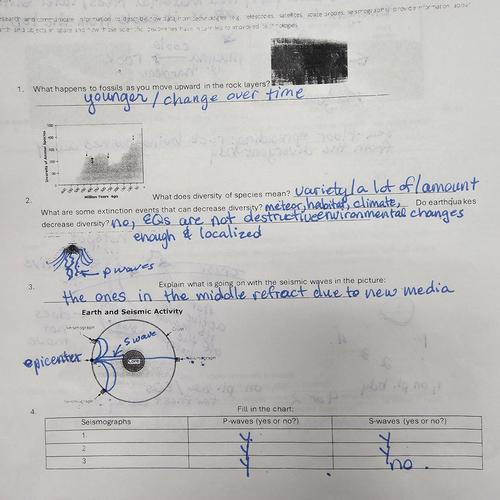 search and communicate information to describe how data from technologies (e.g. telescopes, satellites, space probes, seismography) provide information about
earth and objects in space and how those scientific discoveries have resulted in improved technologies
1. What happens to fossils as you move upward in the rock layers?
younger / change over time
Diversity of Animal Species
Million Years Ago
2. What does diversity of species mean? variety / a lot of / amount
What are some extinction events that can decrease diversity? meteor, habitat, climate, Do earthquakes
decrease diversity? no, EQs are not destructive environmental changes
enough & localized
P waves
3. Explain what is going on with the seismic waves in the picture:
the ones in the middle refract due to new media
Earth and Seismic Activity
Seismograph
Crust
S wave
epicenter
Core
Seismograph
Seismograph
4. Fill in the chart:
Seismographs P-waves (yes or no?) S-waves (yes or no?)
1. Y Y
2 Y Y
3 Y no